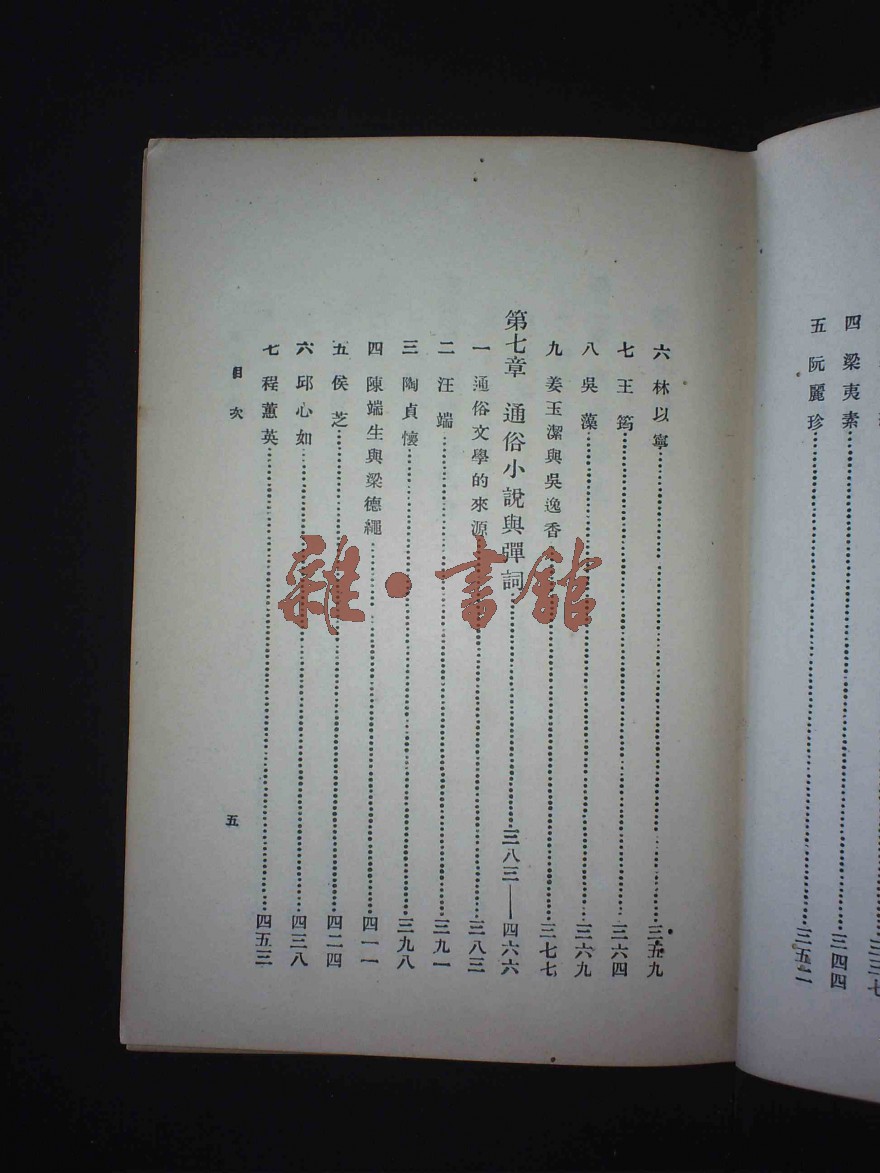 四 梁夷素……三四四
五 阮麗珍……三五二
六 林以寧……三五九
七 王筠……三六四
八 吳藻……三六九
九 姜玉潔與吳逸香……三七七
第七章 通俗小說與彈詞……三八三——四六六
一 通俗文學的來源……三八三
二 汪端……三九一
三 陶貞懷……三九八
四 陳端生與梁德繩……四一一
五 侯芝……四二四
六 邱心如……四三八
七 程蕙英……四五三
目次
五
雜·書館